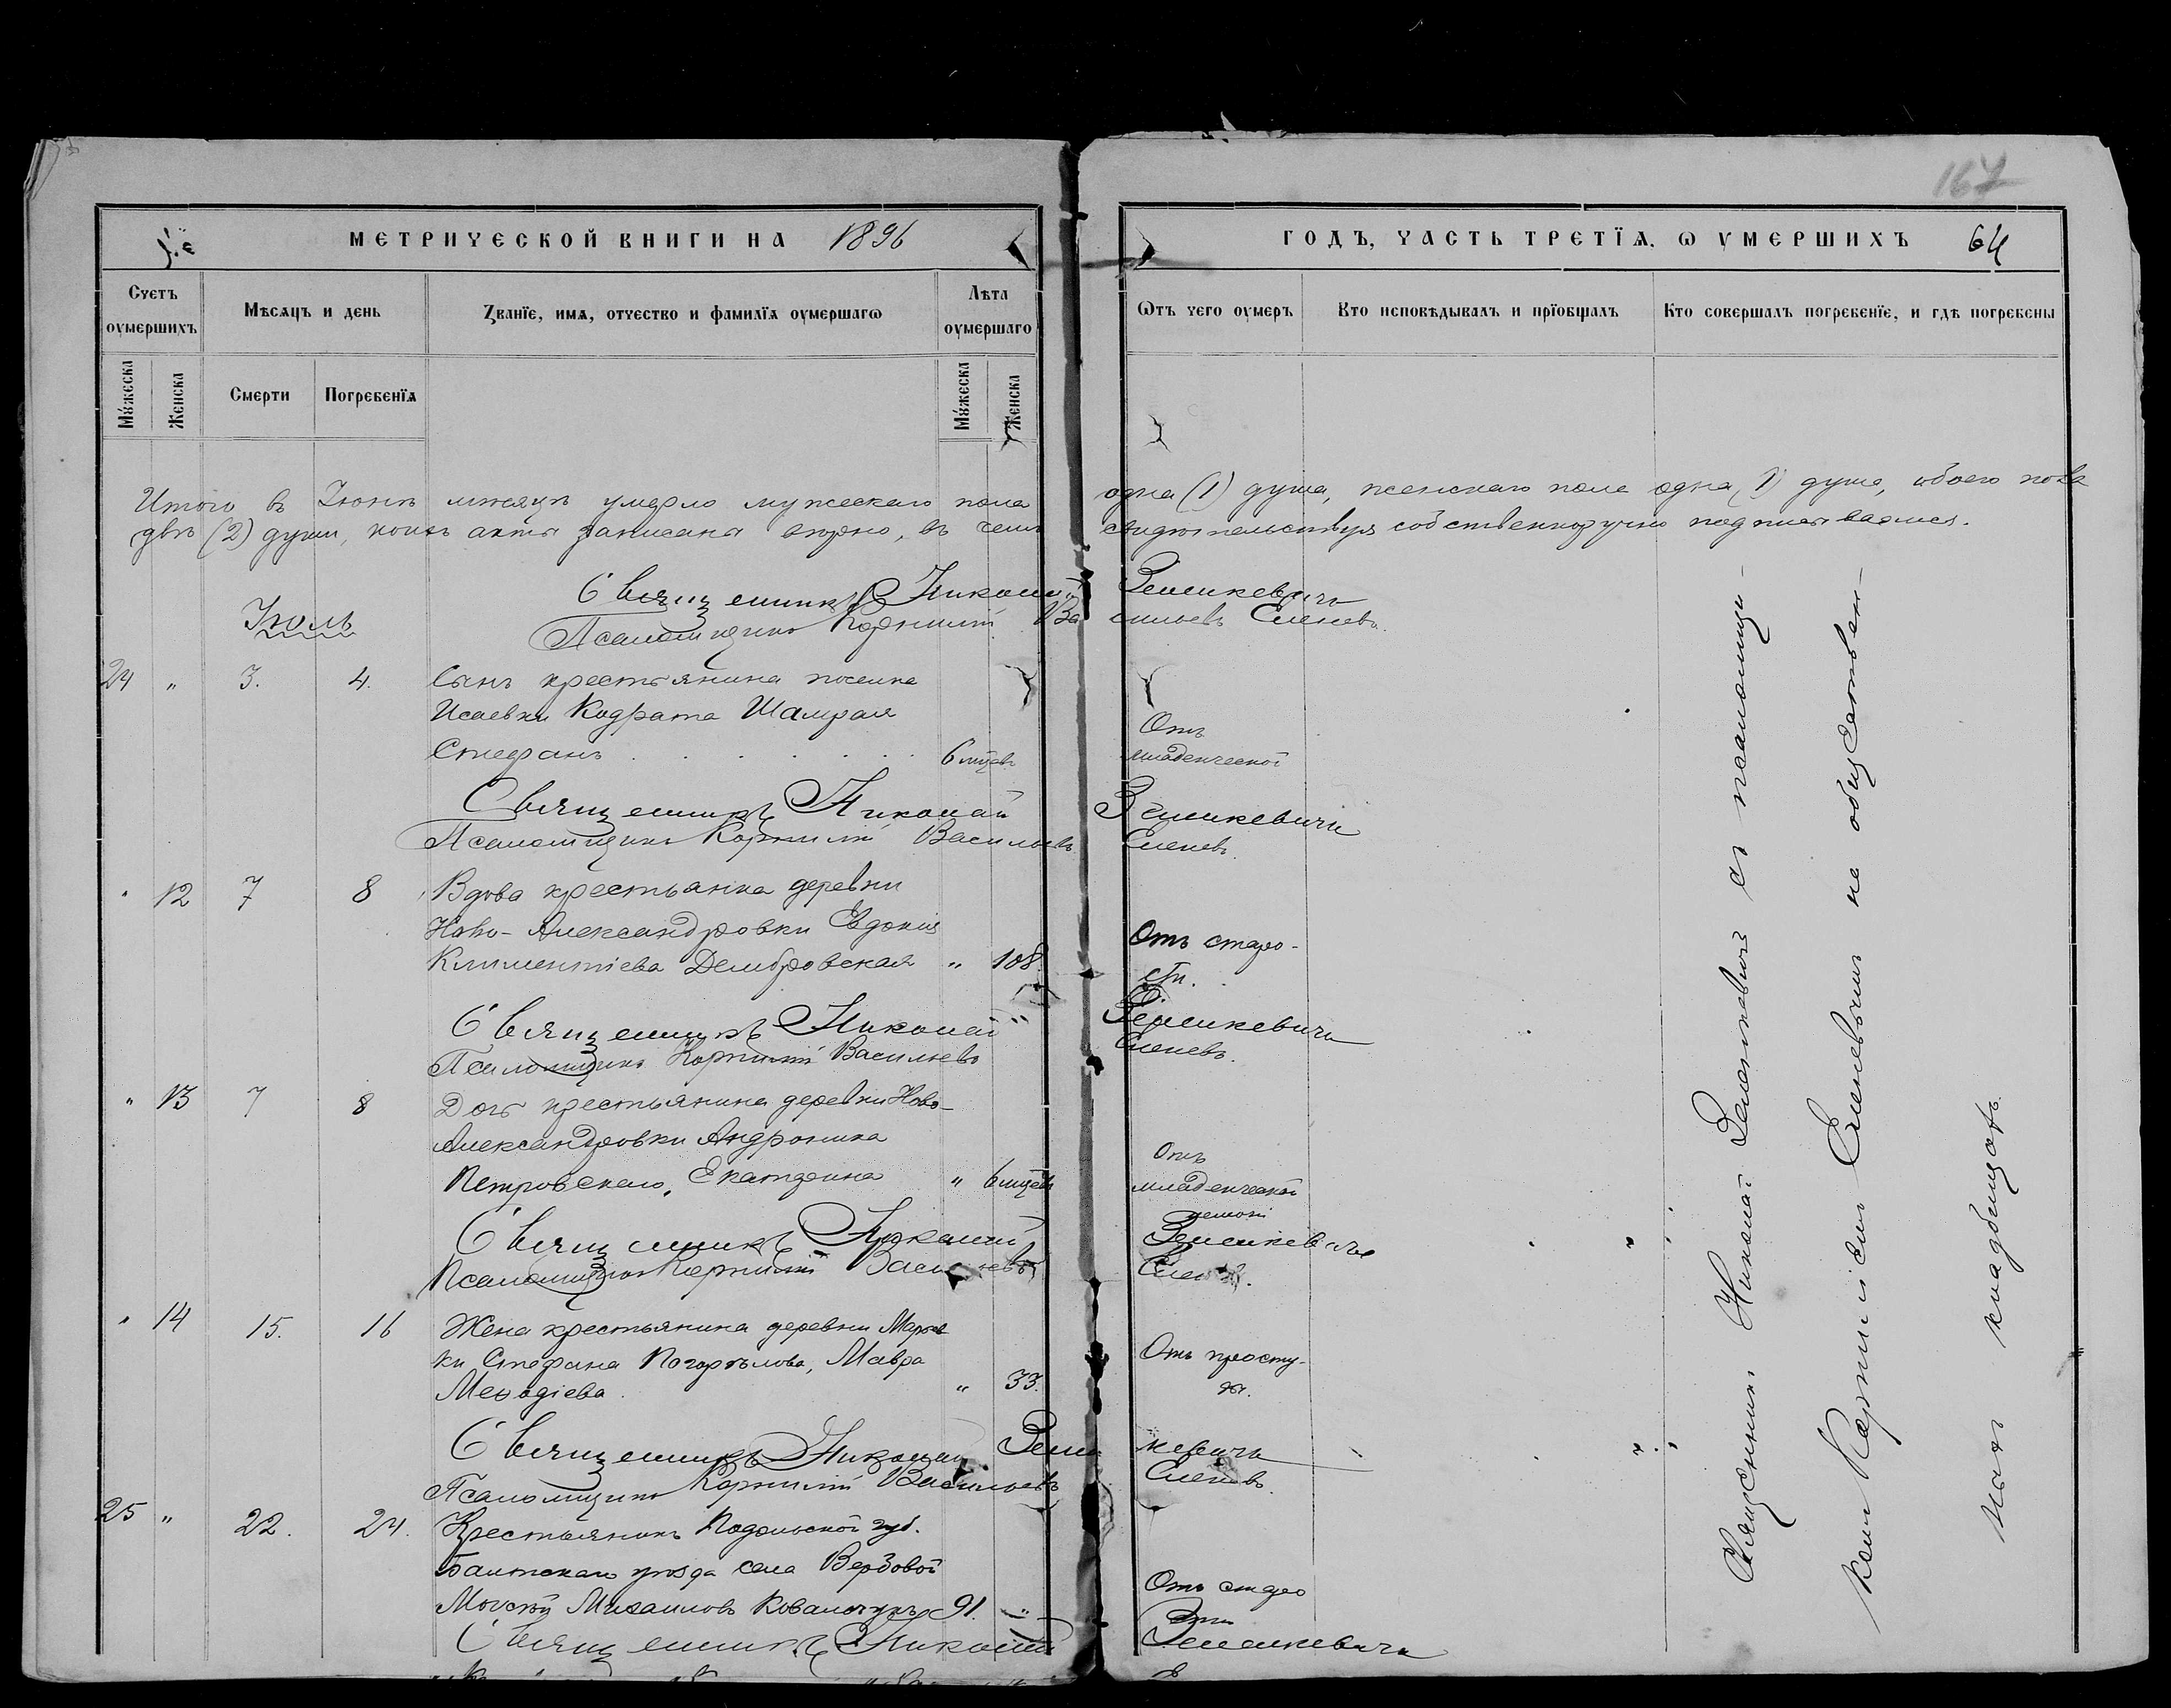 167
МЕТРИЧЕСКОЙ КНИГИ НА 1896
ГОДЪ, ЧАСТЬ ТРЕТЇѦ, Ѡ УМЕРШИХЪ 64
Счетъ оумершихъ
Мѣсѧцъ и день
Званїе, имѧ, отчество и фамилїѧ оумершагѡ
Лѣта оумершаго
Ѿтъ чего оумеръ
Кто исповѣдывалъ и прїобщалъ
Кто совершалъ погребенїе, и гдѣ погребены
Мꙋжеска
Женска
Смерти
Погребенїѧ
Мꙋжеска
Женска
Итого въ Іюнѣ мѣсяцѣ умерло мужескаго пола одна (1) душа, женскаго пола одна (1) душа, обоего пола
двѣ (2) души, коихъ акты записаны вѣрно, въ чемъ свидѣтельствуя собственноручно подписываемся.
Священникъ Николай Зелинкевичъ
Псаломщикъ Корнилій Васильевъ Еленевъ.
Іюль
24 " 3. 4. Сынъ крестьянина поселка
Исаевки Кодрата Шамрая
Стефанъ 6 мцевъ
Отъ
младенческой
Священникъ Николай Зелинкевичъ
Псаломщикъ Корнилій Васильевъ Еленевъ.
" 12 7 8 Вдова крестьянка деревни
Ново-Александровки Евдокія
Климентіева Дембровская " 108.
Отъ старо-
сти.
Священникъ Николай Зелинкевичъ
Псаломщикъ Корнилій Васильевъ Еленевъ.
" 13 7 8 Дочь крестьянина деревни Ново-
Александровки Андроника
Петровскаго, Екатерина " 6 мцевъ
Отъ
младенческой
Священникъ Николай Зелинкевичъ
Псаломщикъ Корнилій Васильевъ Еленевъ.
" 14 15. 16 Жена крестьянина деревни
ки Стефана Погорѣлова, Мавра
Меѳодіева. " 33.
Отъ просту-
ды.
Священникъ Николай Зелинкевичъ
Псаломщикъ Корнилій Васильевъ Еленевъ.
25 " 22. 24. Крестьянинъ Подольской губ.
Балтскаго уѣзда села Вербовой
Моисей Михаиловъ Ковальчукъ 91. "
Отъ старо
сти
Священникъ Николай Зелинкевичъ
Священникъ Николай Зелинкевичъ съ псаломщи-
комъ Корниліемъ Еленевымъ на общественномъ
кладбищѣ.